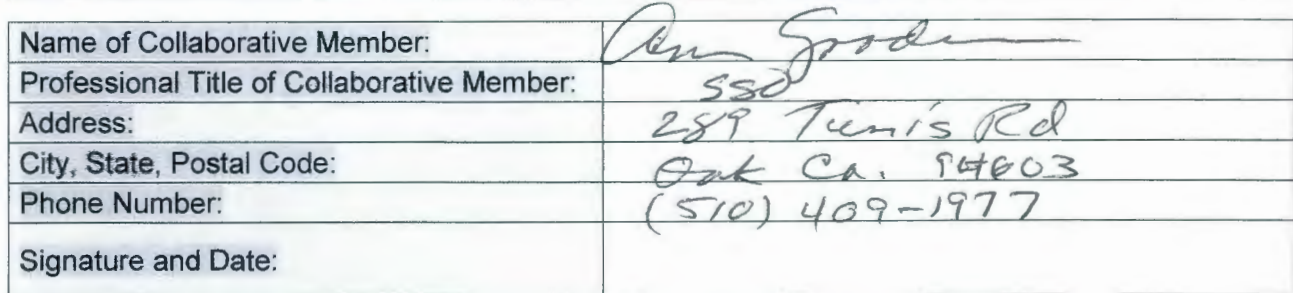 Name of Collaborative Member: Ann
Professional Title of Collaborative Member: SSO
Address: 289 Tunis Rd
City, State, Postal Code: Oak Ca. 94603
Phone Number: (510) 409-1977
Signature and Date: